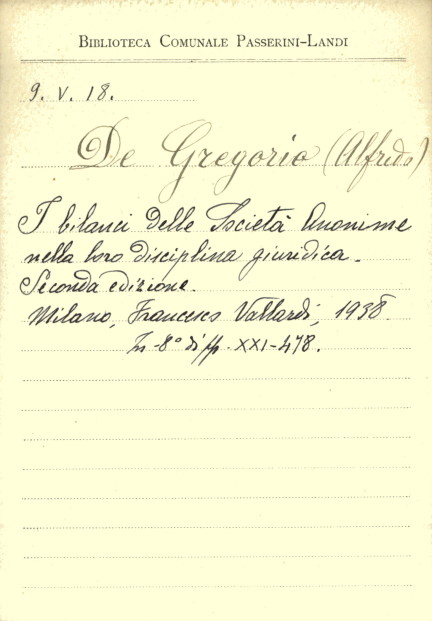 BIBLIOTECA COMUNALE PASSERINI-LANDI
9. V. 18.
De Gregorio (Alfredo)
I bilanci delle Società Anonime
nella loro disciplina giuridica.
Seconda edizione.
Milano, Francesco Vallardi, 1938
In-8° di pp. XXI-478.